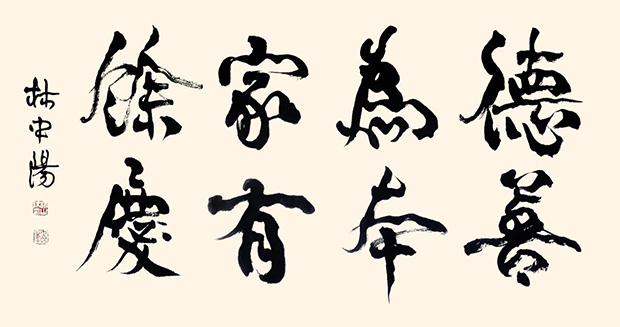 德善
為本
家有
餘慶
林中陽